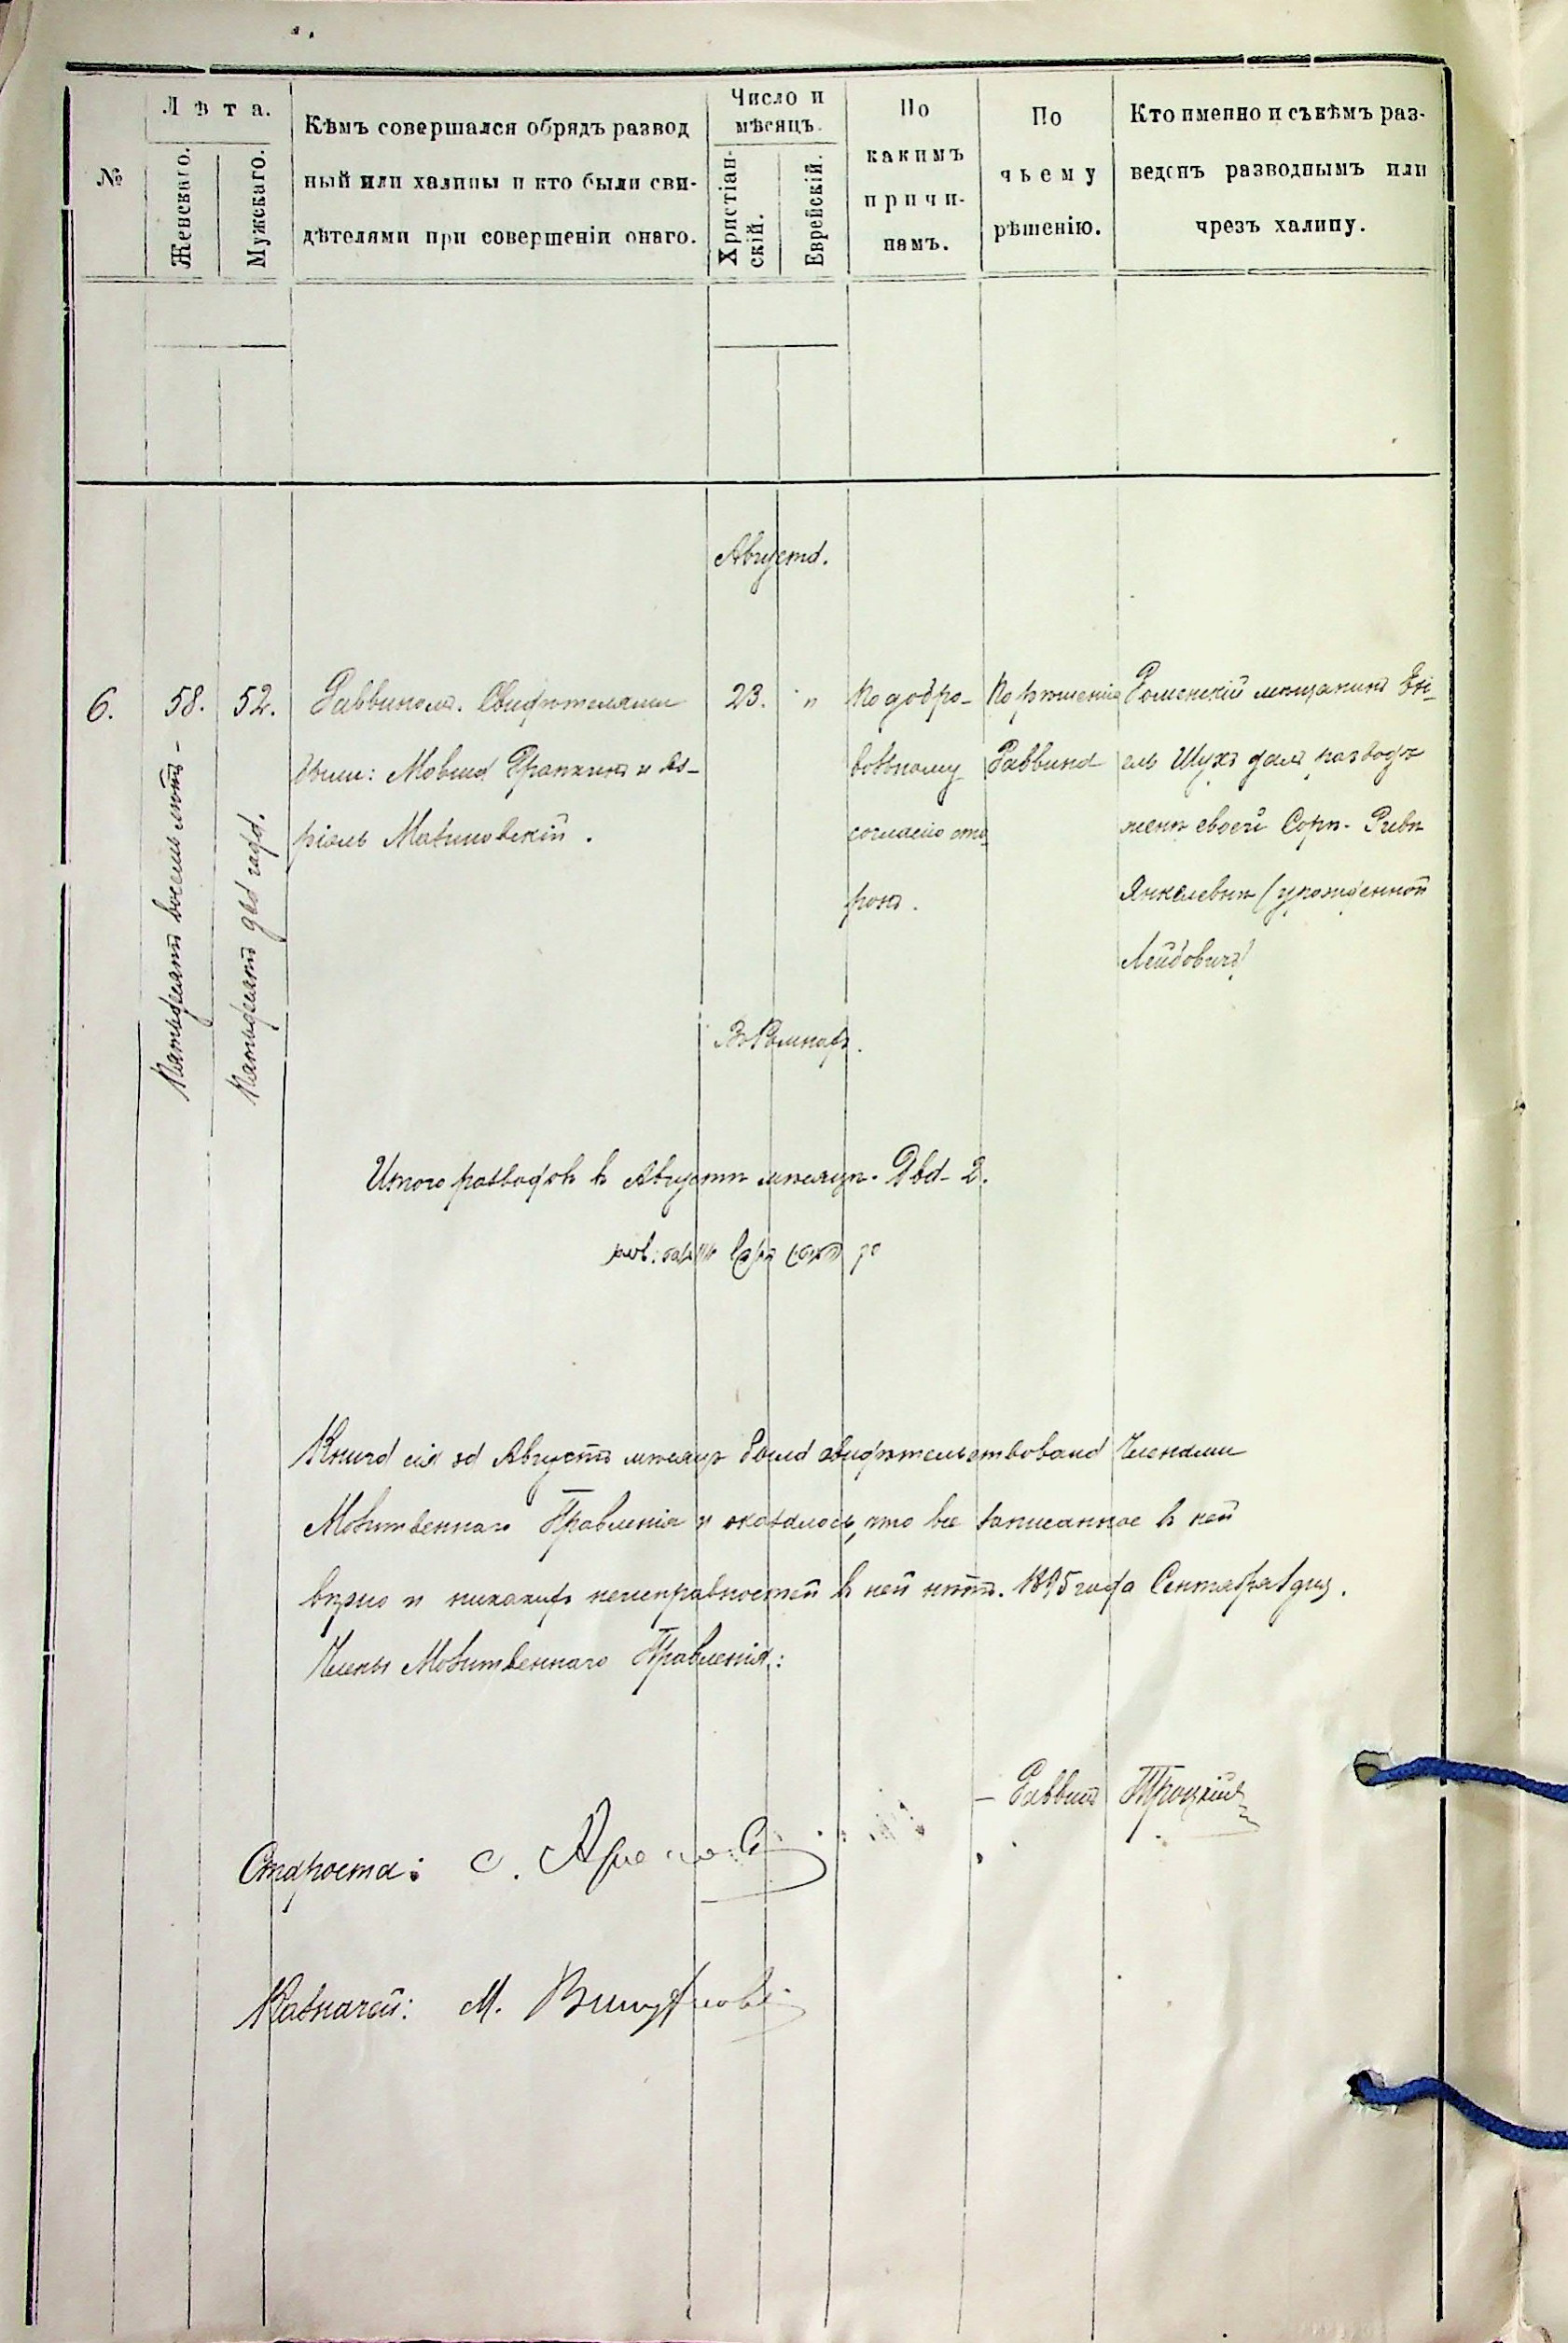 №
Лѣта.
Женскаго.
Мужскаго.
Кѣмъ совершался обрядъ развод
ный или халицы и кто были сви-
дѣтелями при совершеніи онаго.
Число и
мѣсяцъ.
Христіан-
скій.
Еврейскій.
По
какимъ
причи-
намъ.
По
чьему
рѣшенію.
Кто именно и съ кѣмъ раз-
веденъ разводнымъ или
чрезъ халицу.
Августа.
6.
58.
Пятьдесятъ восемь лѣтъ -
52.
Пятьдесятъ два года.
Раввиномъ. Свидѣтелями
были: Мовша и Аз-
ріель Малиновскій.
23.
"
По добро-
вольному
согласію сто-
ронъ.
По рѣшенію
Раввина
Роменскій мѣщанинъ
Шухъ далъ разводъ
женѣ своей Сорѣ-Ривѣ
Янкелевнѣ (урожденной
Лейбовичъ)
Въ Ромнахъ.
Итого разводовъ въ Августѣ мѣсяцѣ - Два - 2.
Книга сія за Августъ мѣсяцъ была свидѣтельствована Членами
Молитвеннаго Правленія и оказалось, что все записанное въ ней
вѣрно и никакихъ неисправностей въ ней нѣтъ. 1895 года Сентября 1 дня.
Члены Молитвеннаго Правленія:
- Раввинъ Троцкій
Староста: С.
Казначей: М.